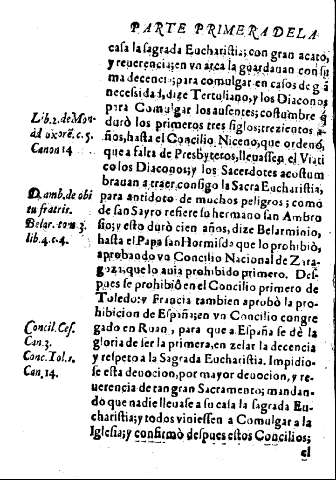 PARTE PRIMERA DE LA
casa la sagrada Eucharistia; con gran acato,
y reuerencia; en vn arca la guardauan con su
ma decencia; para comulgar en casos de grã
necessidad, dize Tertuliano, y los Diaconos
para Comulgar los ausentes; costumbre q̃
durò los primeros tres siglos; trezientos a-
ños, hasta el Concilio Niceno, que ordenó,
que a falta de Presbyteros, lleuassen el Viati
co los Diaconos; y los Sacerdotes acostum
brauan a traer consigo la Sacra Eucharistia,
para antidoto de muchos peligros; como
de san Sayro refiere su hermano san Ambro
sio; y esto durò cien años, dize Belarminio,
hasta el Papa san Hormisda que lo prohibiò,
aprobando vn Concilio Nacional de Zara-
goza, que lo auia prohibido primero. Des-
pues se prohibiò en el Concilio primero de
Toledo: y Francia tambien aprobò la pro-
hibicion de España; en vn Concilio congre
gado en Ruan, para que a España se dè la
gloria de ser la primera, en zelar la decencia
y respeto a la Sagrada Eucharistia. Impidio-
se esta deuocion, por mayor deuocion, y re-
uerencia de tan gran Sacramento; mandan-
do que nadie lleuase a su casa la sagrada Eu-
charistia; y todos viniessen a Comulgar a la
Iglesia; y confirmò despues estos Concilios;
el
Lib. 2. de Mon-
ad oxorẽ. c. 5.
Canon 14
D. amb. de obi
tu fratris.
Belar. tom. 3.
lib. 4. c. 4.
Concil. Ces.
Can. 3.
Conc. Tol. 1.
Can. 14.